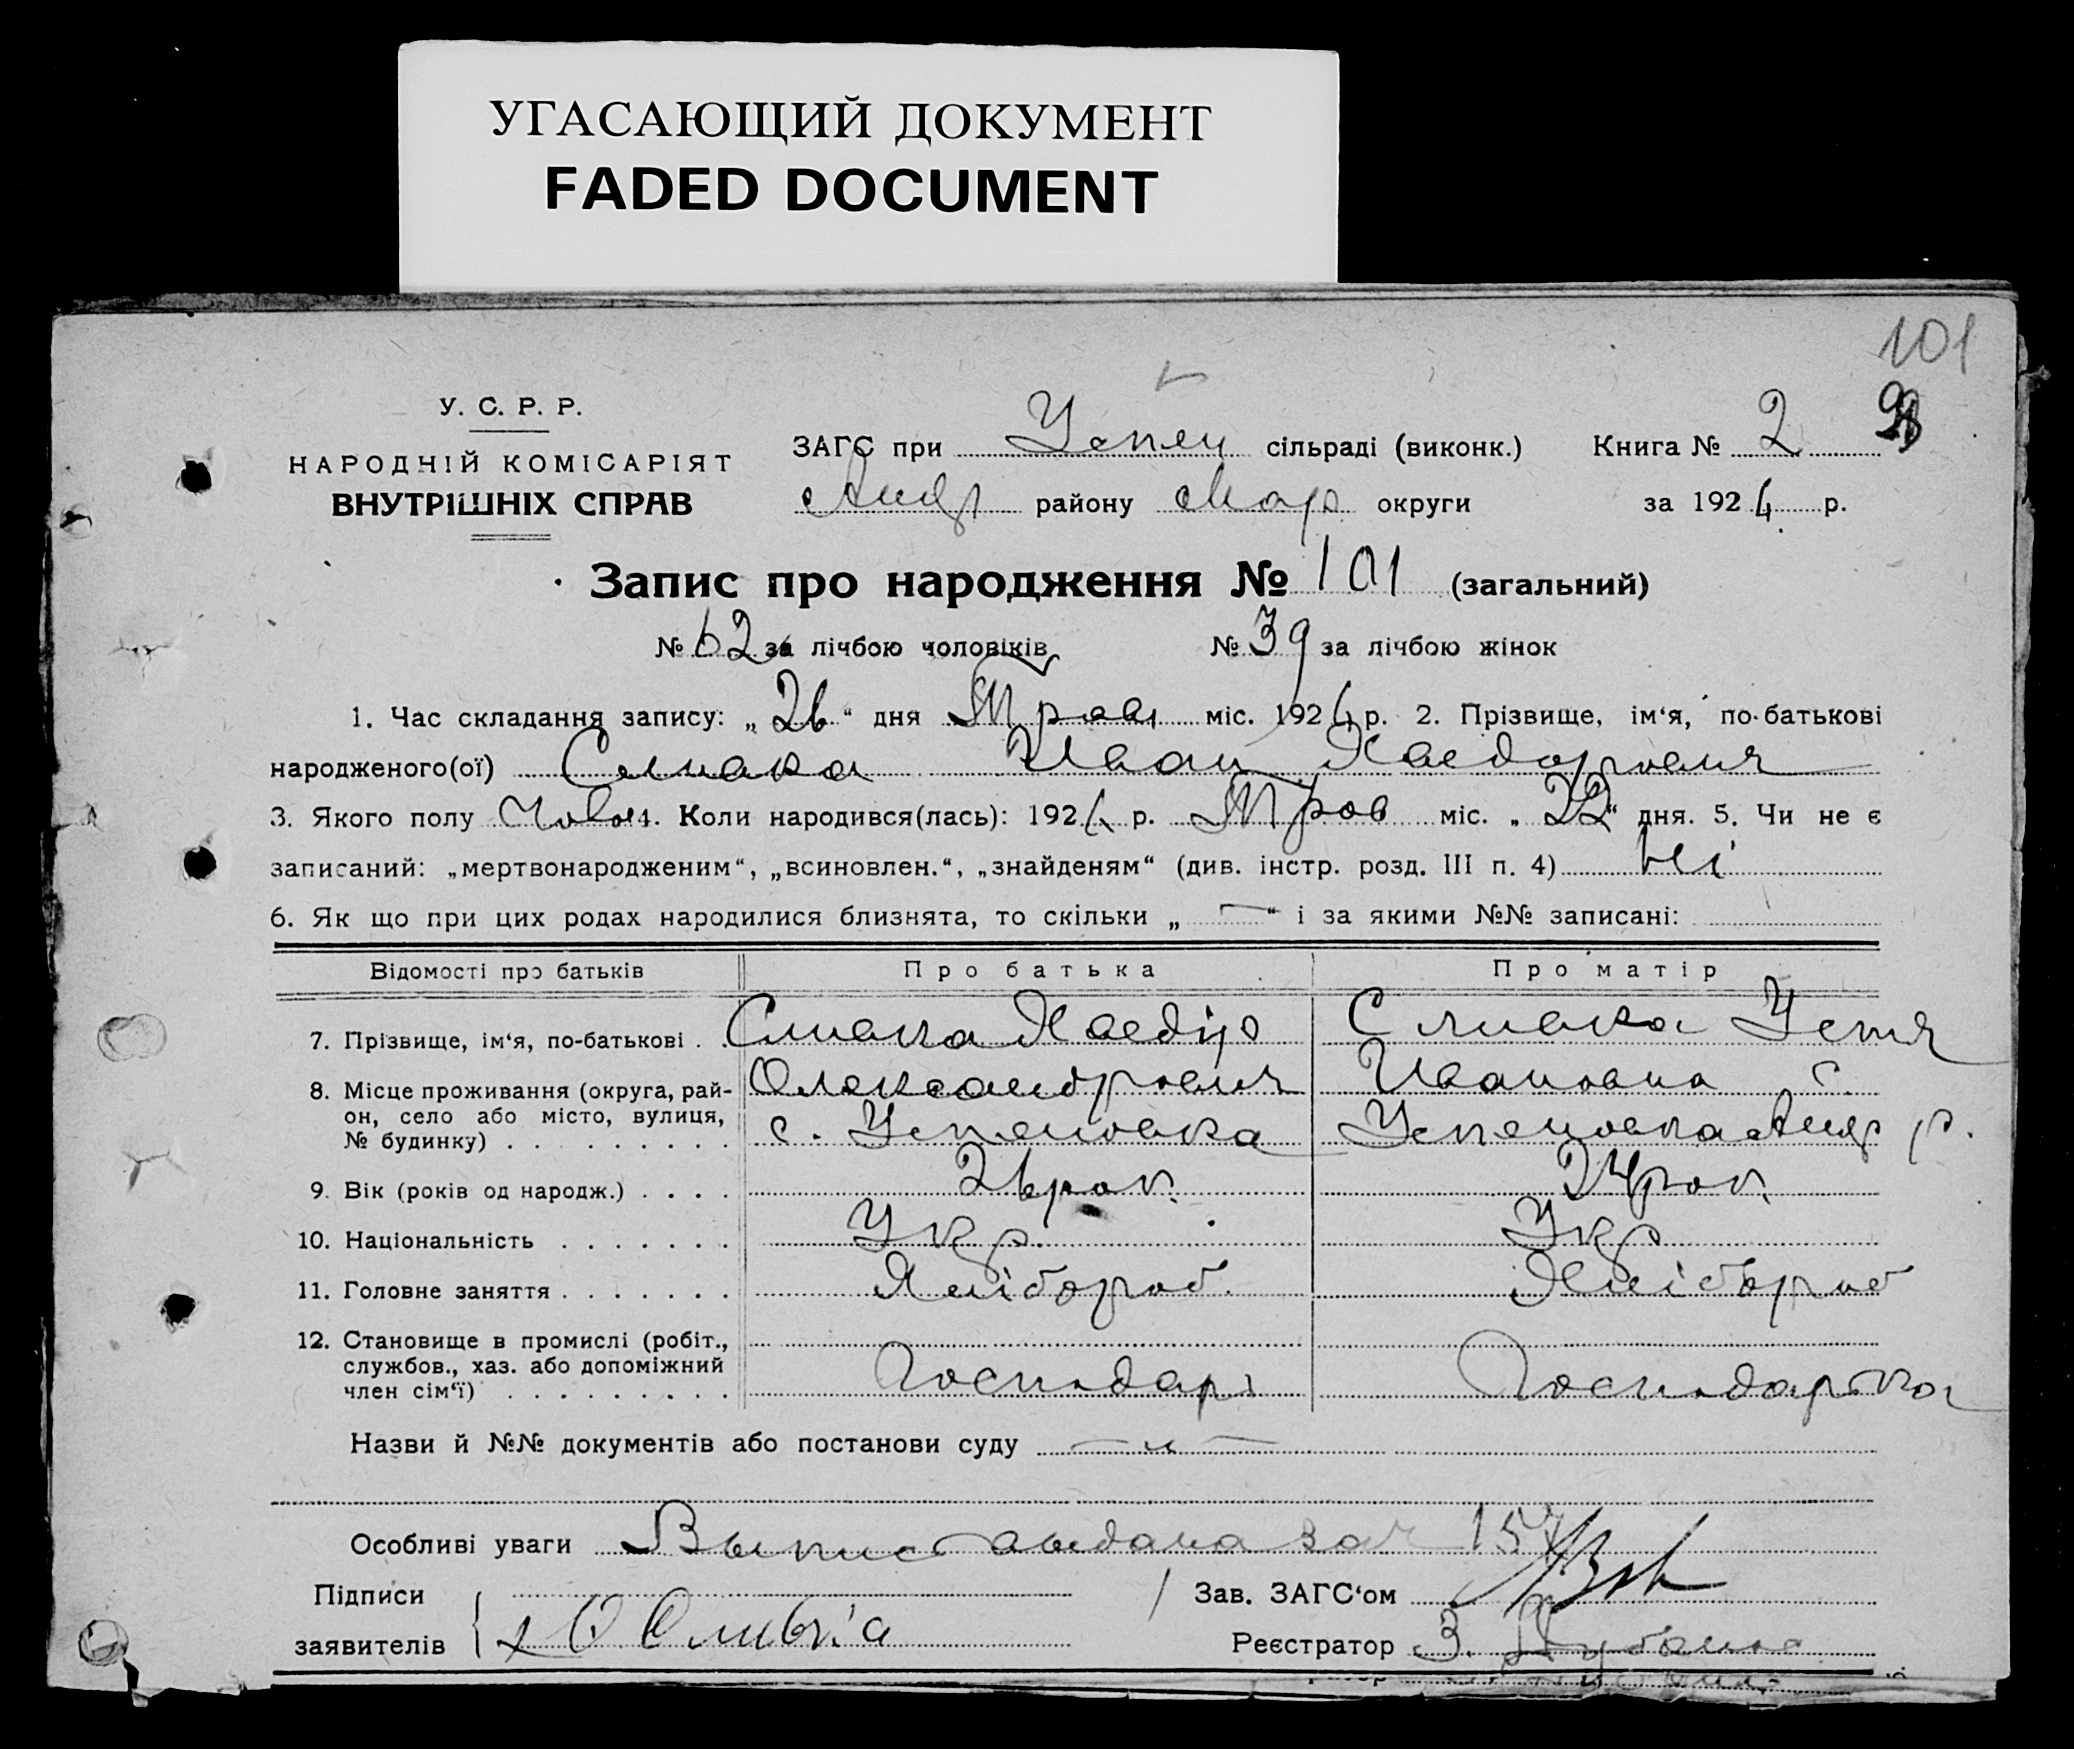 УГАСАЮЩИЙ ДОКУМЕНТ
FADED DOCUMENT
101
У. С. Р. Р.
НАРОДНІЙ КОМІСАРІЯТ
ВНУТРІШНІХ СПРАВ
ЗАГС при Успен сільраді (виконк.) Книга № 2
Андр району Мар округи за 1924 р.
Запис про народження № 101 (загальний)
№ 62 за лічбою чоловіків № 39 за лічбою жінок
1. Час складання запису: „26“ дня Трав міс. 1924 р. 2. Прізвище, ім‘я, по-батькові
народженого(ої) Сливка Иван Хведорович
3. Якого полу Чолов 4. Коли народився(лась): 1924 р. Трав міс. „22“ дня. 5. Чи не є
записаний: „мертвонародженим“, „всиновлен.“, „знайденям“ (див. інстр. розд. III п. 4) Ні
6. Як що при цих родах народилися близнята, то скільки „—“ і за якими №№ записані:
Відомості про батьків Про батька Про матір
7. Прізвище, ім‘я, по-батькові . . Сливка Хведір Сливка Устя
8. Місце проживання (округа, рай- Олександрович Ивановна с.
он, село або місто, вулиця, с. Успеновка Успеновка Андр р.
№ будинку) . . . . . . . . .
9. Вік (років од народж.) . . . . 26 рок. 24 рок.
10. Національність . . . . . . . Укр. Укр
11. Головне заняття . . . . . . . Хлібороб. Хлібороб
12. Становище в промислі (робіт.,
службов., хаз. або допоміжний Господарь Господарка
член сім‘ї) . . . . . . . . .
Назви й №№ документів або постанови суду — " —
Особливі уваги Выпис выдана за № 157
Підписи Зав. ЗАГС‘ом
заявителів Реєстратор З.